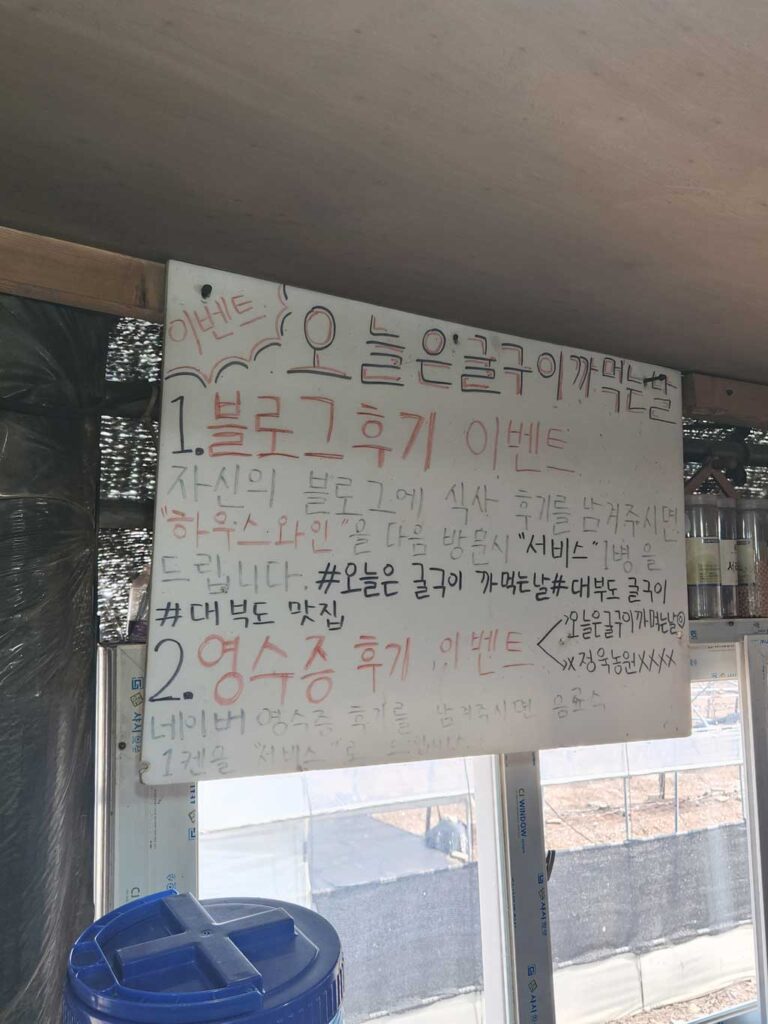 이벤트
오늘은굴구이까먹는날
1. 블로그후기 이벤트
자신의 블로그에 식사 후기를 남겨주시면
"하우스와인"을 다음 방문시 "서비스" 1병을
드립니다. #오늘은 굴구이 까먹는날 #대부도 굴구이
#대부도 맛집
2. 영수증 후기 이벤트
오늘은굴구이까먹는날◎
x정욱농원xxxx
네이버 영수증 후기를 남겨주시면 음료수
1켄을 "서비스"로 드립니다.
CI WINDOW
샤시